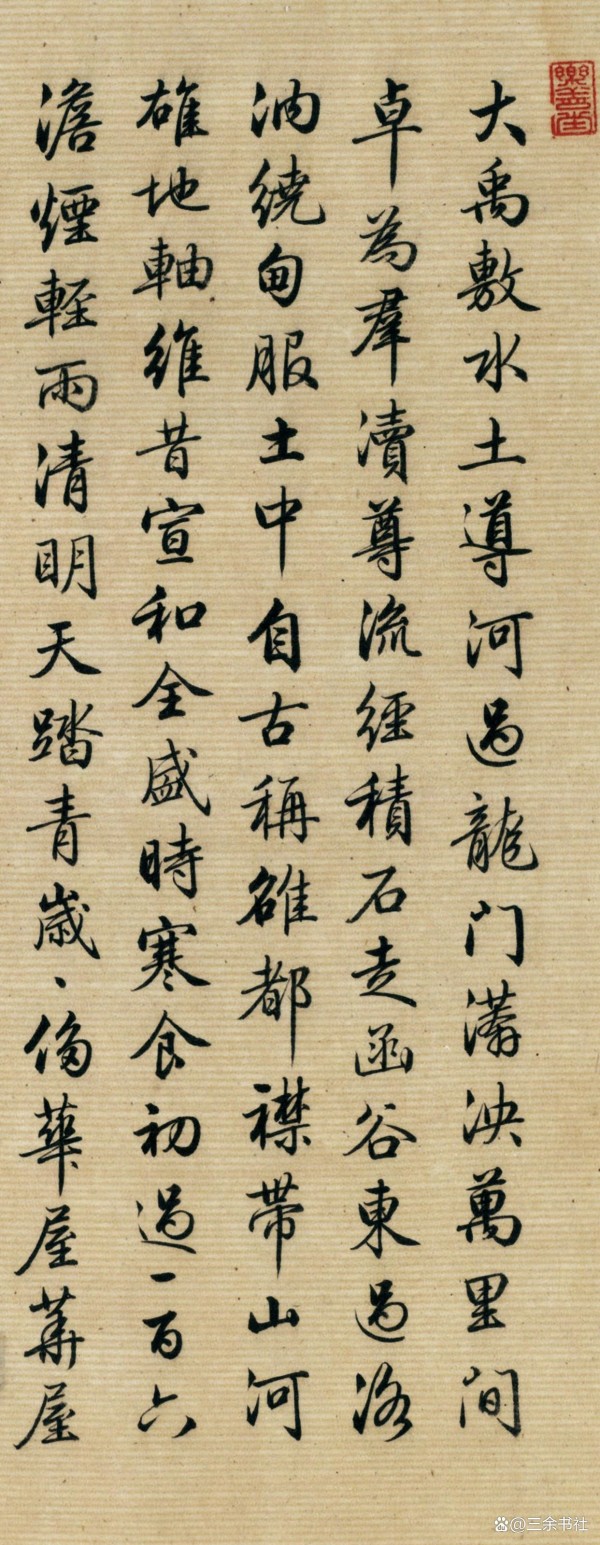 大禹敷水土導河過龍門潾泱萬里間
卓為羣瀆尊流經積石走函谷東過洛
汭繞甸服土中自古稱雒都襟帶山河
雄地軸維昔宣和全盛時寒食初過一百六
澹煙輕雨清明天踏青歲、傷華屋華屋
樂善堂
@三余书社